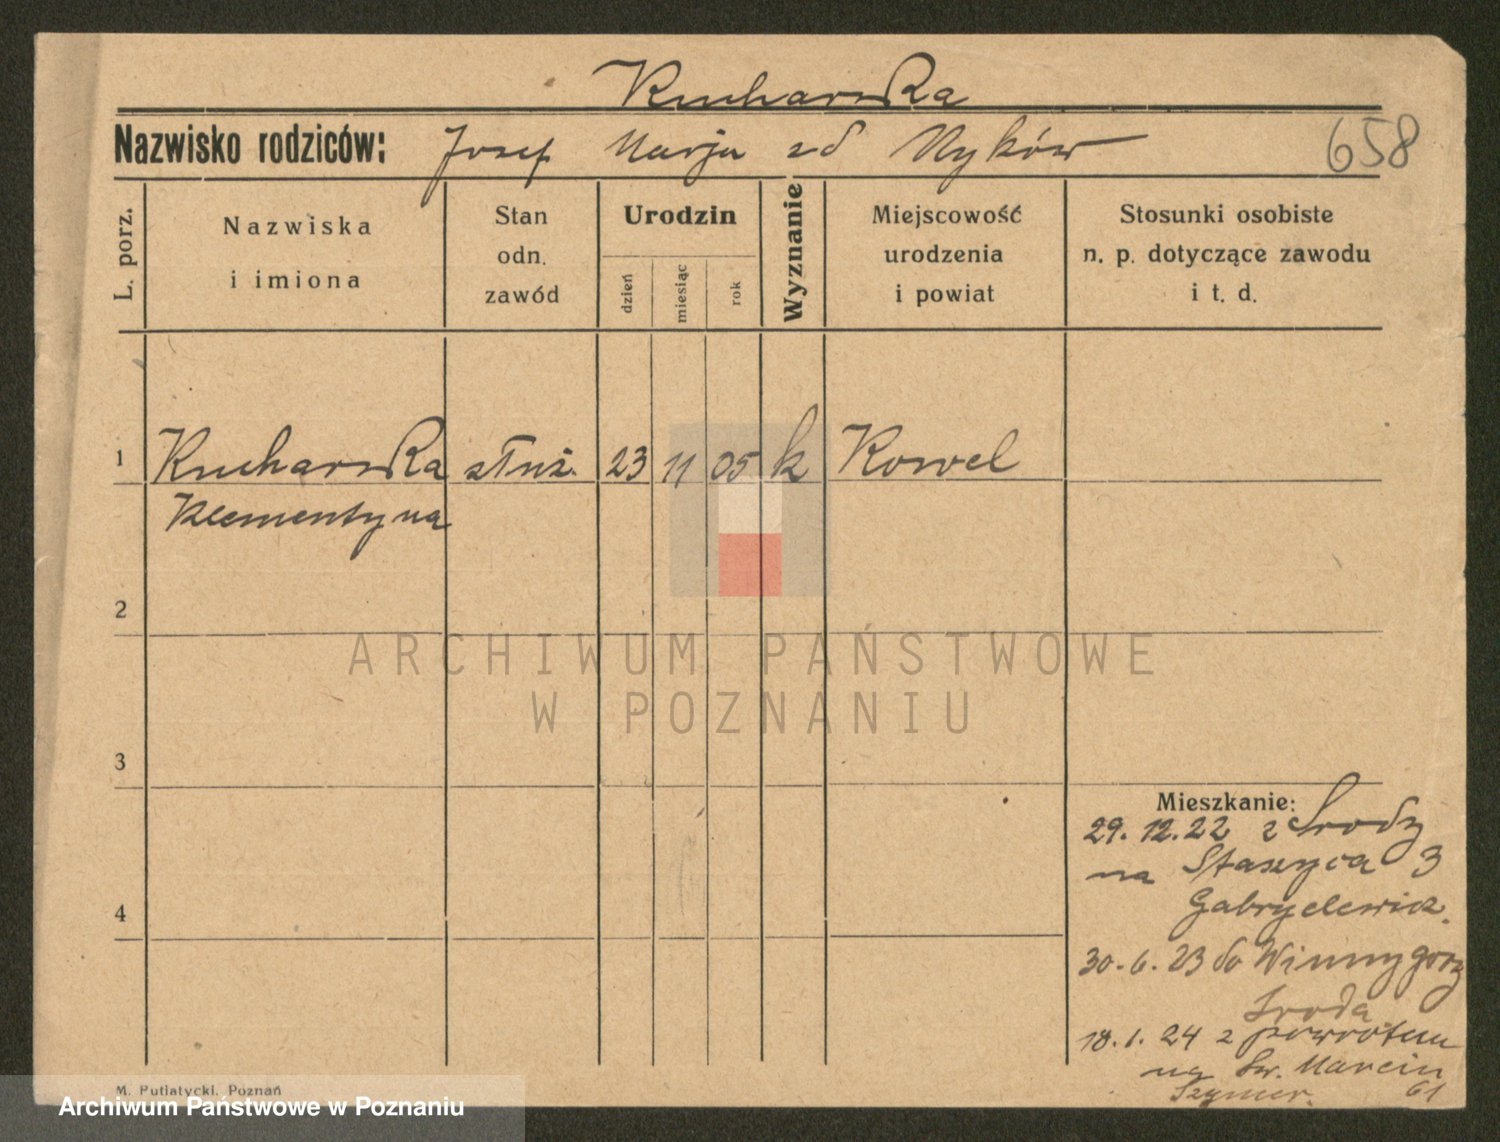 Kucharska
Nazwisko rodziców: Josef Marja zd Nyków
658
L. porz.
Nazwiska
i imiona
Stan
odn.
zawód
Urodzin
dzień
miesiąc
rok
Wyznanie
Miejscowość
urodzenia
i powiat
Stosunki osobiste
n. p. dotyczące zawodu
i t. d.
1 Kucharska służ. 23 11 05 k Kowel
Klementyna
2
ARCHIWUM PAŃSTWOWE
W POZNANIU
3
Mieszkanie:
29. 12. 22 z Środy
na Staszyca 3
Gabryelewicz.
4
30. 6. 23 do Winnygory
Środa
18. 1. 24 z powrotem
na Św. Marcin
Szymer. 61
M. Putiatycki, Poznań
Archiwum Państwowe w Poznaniu